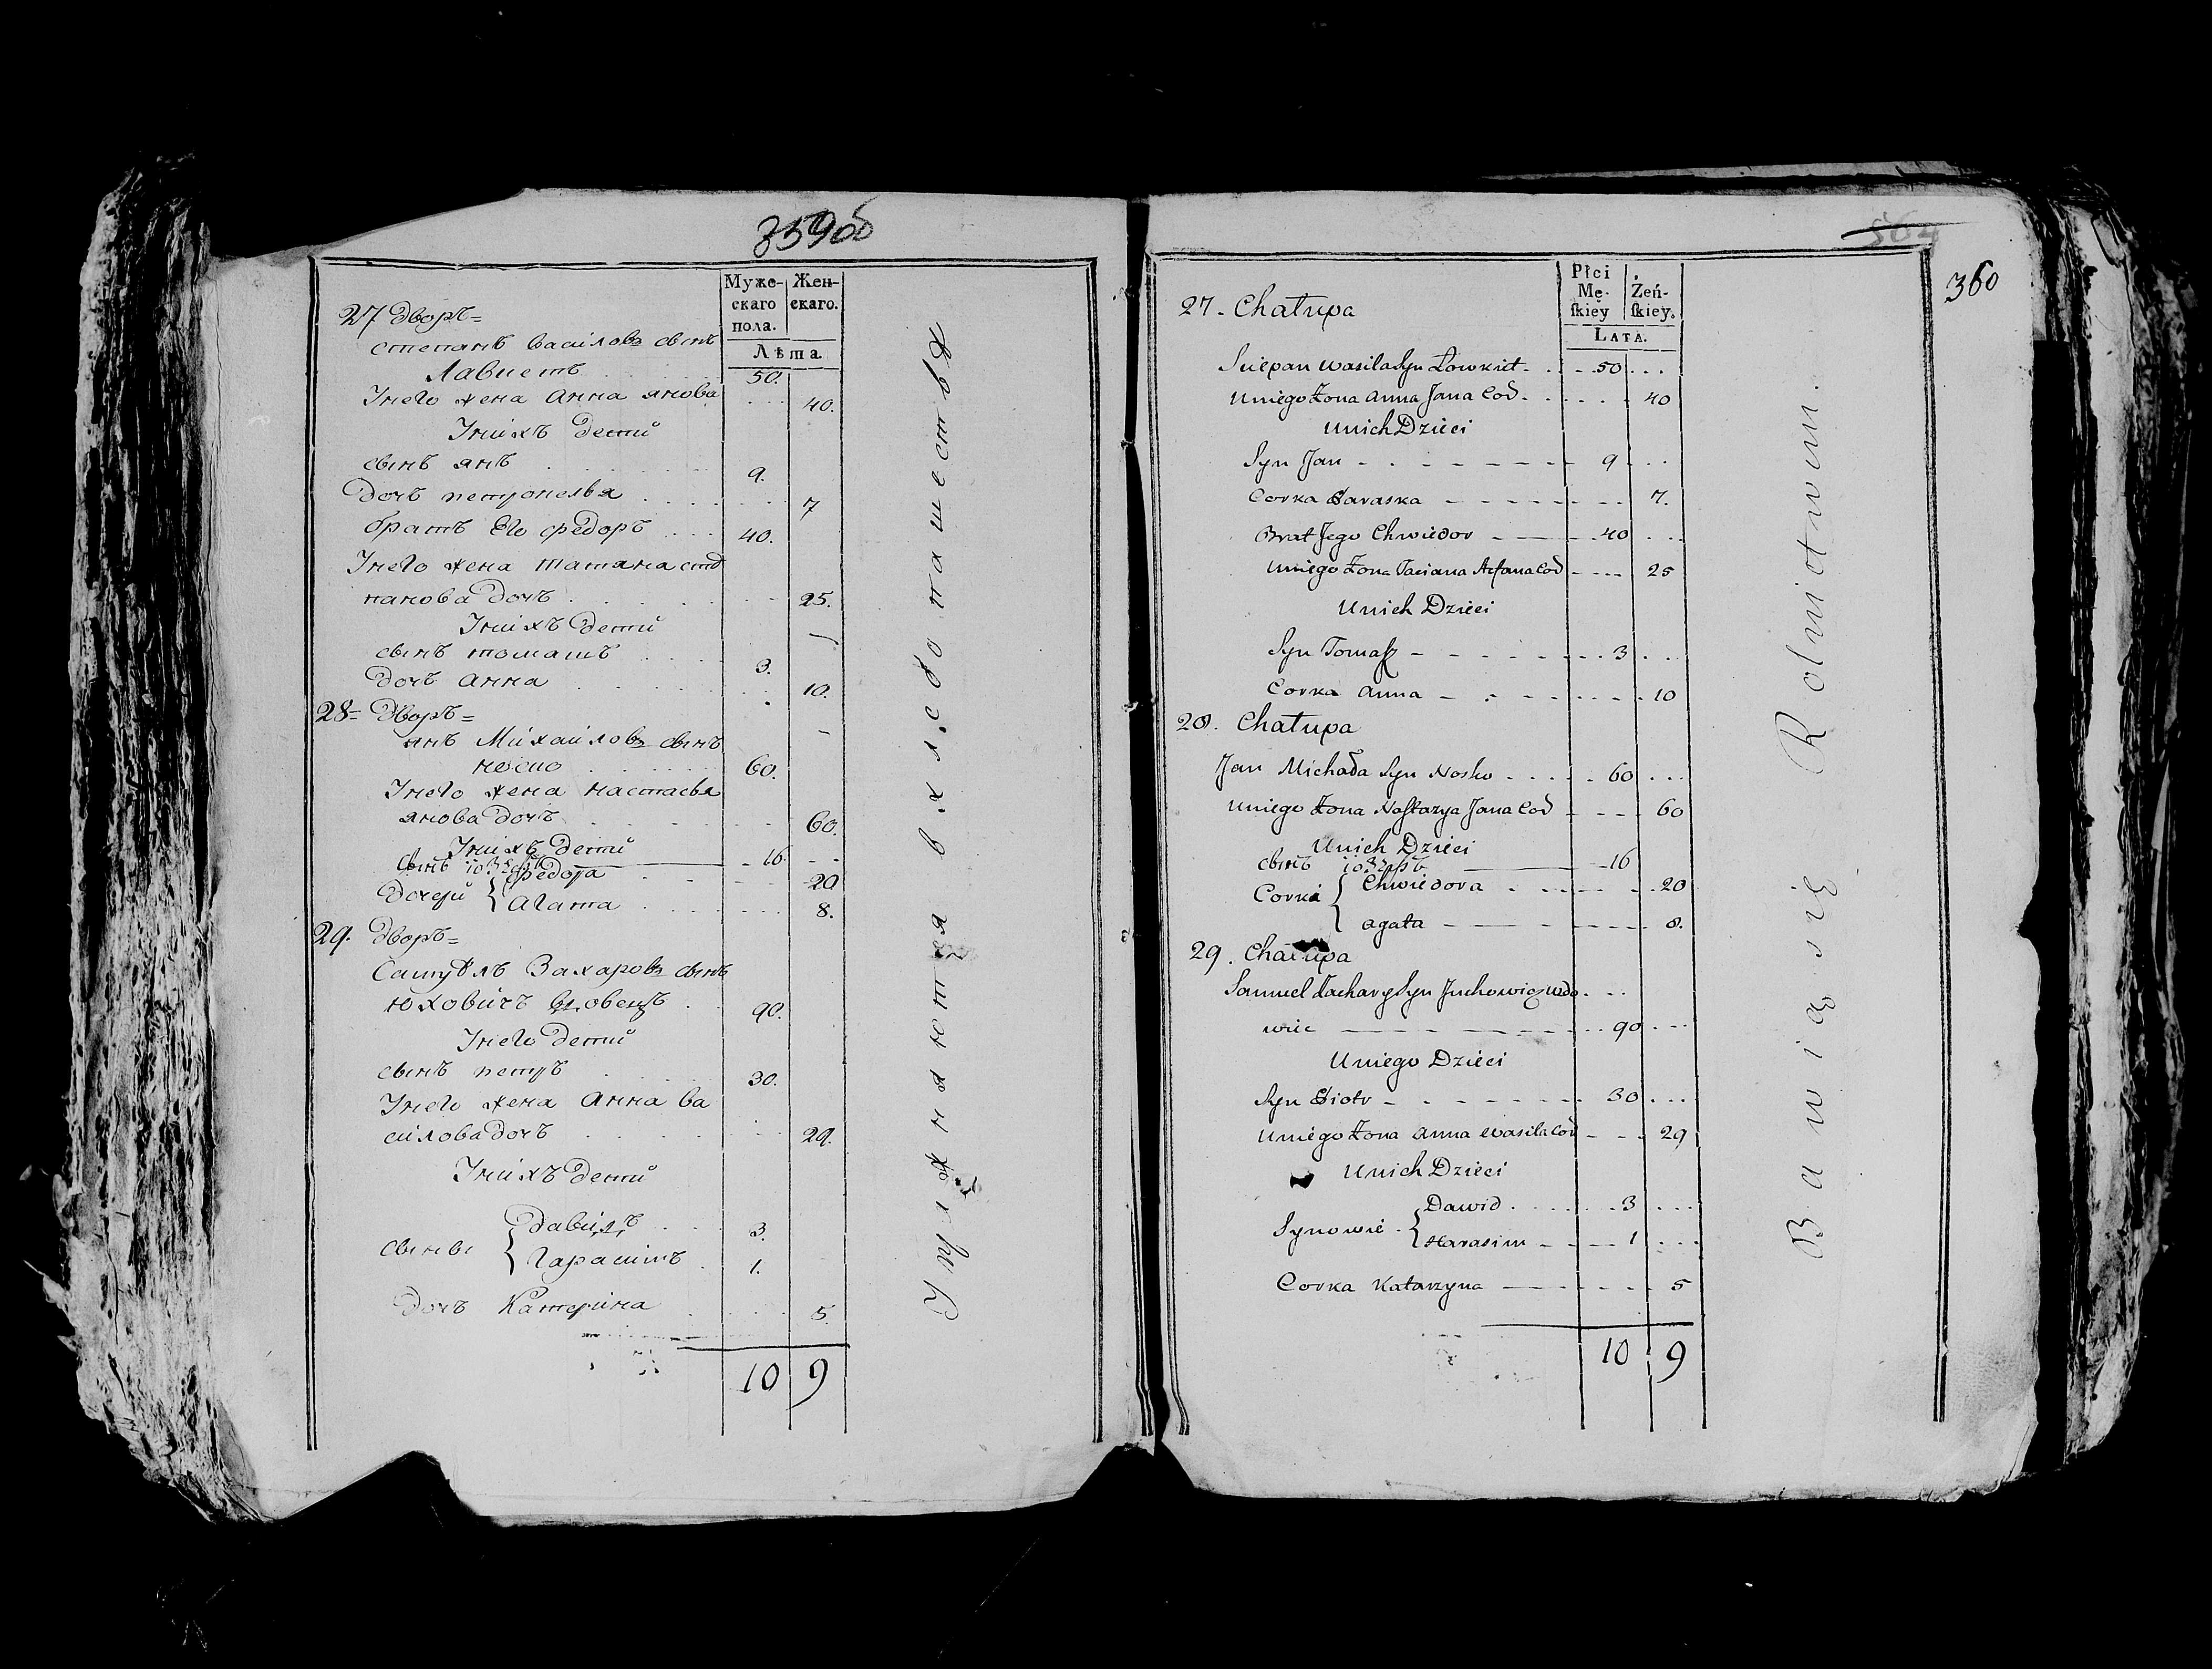 359об
Муже-
скаго
пола.
Жен-
скаго.
Лѣта
27 дворъ=
степанъ василовъ сынъ
Лавнетъ . . . 50.
Унего жена Анна янова . . . 40.
Унихъ дети
сынъ янъ . . . 9.
дочъ петронеля . . . 7
братъ Его федоръ . . . 40.
Унего жена татяна сте
панова дочъ . . . 25.
Унихъ дети
сынъ томашъ . . . 3.
дочъ анна . . . 10.
28= дворъ=
янъ Михаиловъ сынъ
носко . . . 60.
Унего жена настасья
янова дочъ . . . 60.
Унихъ дети
сынъ іозефъ — 16.
дочери { федора . . . 20
агата . . . 8.
29. дворъ=
Самуѣлъ Захаровъ сынъ
юховичъ вдовецъ . . 90.
Унего дети
сынъ петръ . . . 30.
Унего жена Анна ва
силова дочъ . . . 29.
Унихъ дети
сыны { давидъ . . . 3.
гарасимъ . 1.
дочъ Катерина . . . 5.
10 9
Упражняются в хлѣбопашествѣ
360
Płci
Mę-
ſkiey
Żeń-
ſkiey.
LATA.
27. Chałupa
Sciepan Wasila Syn Łowkiet . . . 50 . . .
Uniego Żona Anna Jana Cod . . . 40
Unich Dzieci
Syn Jan - . - - - 9 . . .
Corka Paraska - - - - 7.
Brat Jego Chwiedor - — - 40 . . .
Uniego Żona Taciana Stefana Cod - - - 25
Unich Dzieci
Syn Tomaſz - - - - 3 . .
Corka Anna - . - - - 10
28. Chałupa
Jan Michała Syn Nosko . . . . 60 . . .
Uniego Żona Naſtazya Jana Cod - - - 60
Unich Dzieci
сынъ іозефъ — 16
Corki { Chwiedora . . . 20
Agata - — - - 8.
29. Chałupa
Samuel Zachary Syn Juchowicz wdo
wiec — - - - 90 . . .
Uniego Dzieci
Syn Piotr - - - - 30 . . .
Uniego Żona Anna Wasila Cod - - - 29
Unich Dzieci
Synowie { Dawid . . . . 3 . . .
Harasim - - - 1 . . .
Corka Katarzyna — - - - 5
10 9
Bawią się Rolnictwem.